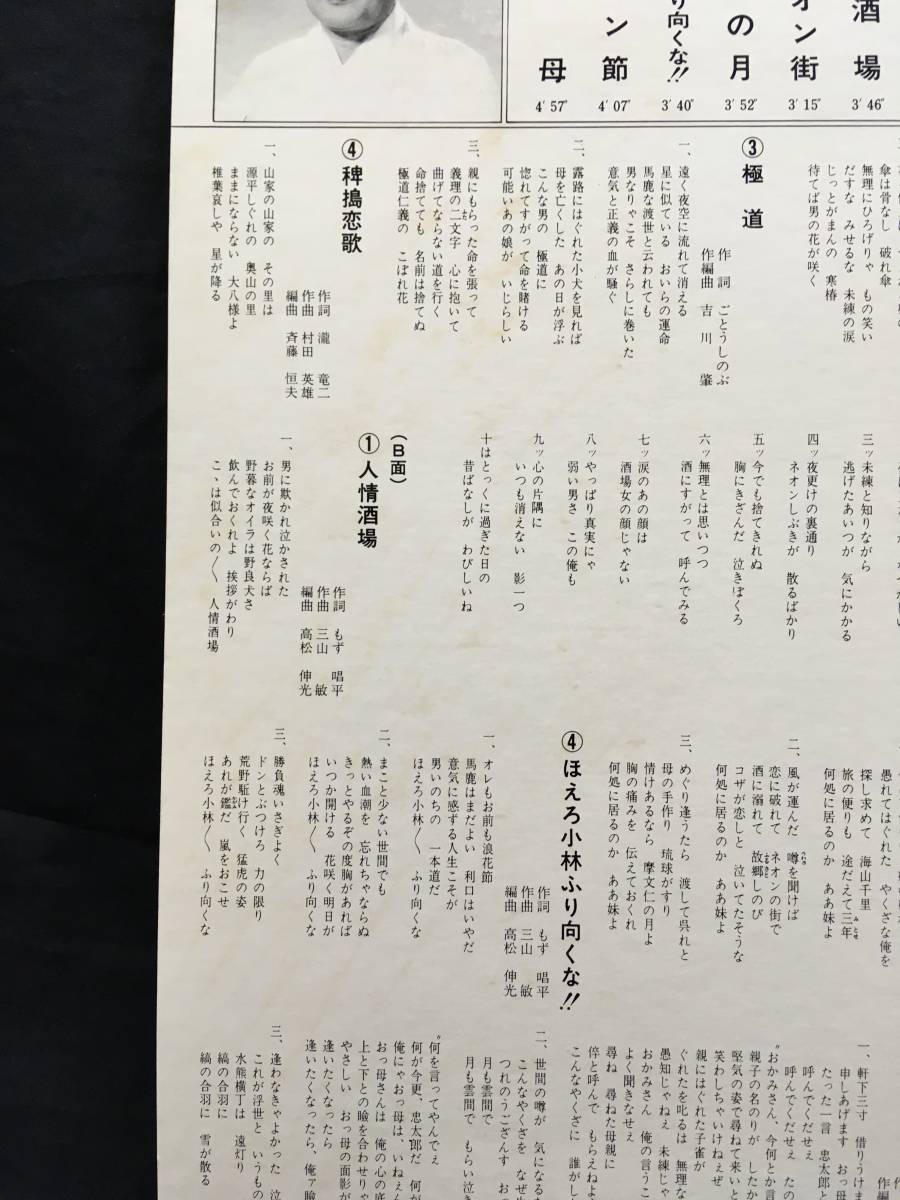 酒場
3′46″
オン街
3′15″
の月
3′52″
り向くな!!
3′40″
ン節
4′07″
母
4′57″
傘は骨なし 破れ傘
無理にひろげりゃ もの笑い
だすな みせるな 未練の涙
じっとがまんの 寒椿
待てば男の花が咲く
③極道
作詞 ごとうしのぶ
作編曲 吉川肇
一、遠く夜空に流れて消える
星に似ている おいらの運命
馬鹿な渡世と云われても
男なりゃこそ さらしに巻いた
意気と正義の血が騒ぐ
二、露路にはぐれた小犬を見れば
母を亡くした あの日が浮ぶ
こんな男の 極道に
惚れてすがって命を賭ける
可能いあの娘が いじらしい
三、親にもらった命を張って
義理の二文字 心に抱いて
曲げてならない道を行く
命捨てても 名前は捨てぬ
極道仁義の こぼれ花
④稗搗恋歌
作詞 瀧竜二
作曲 村田英雄
編曲 斉藤恒夫
一、山家の山家の その里は
源平しぐれの 奥山の里
ままにならない 大八様よ
椎葉哀しや 星が降る
三ッ未練と知りながら
逃げたあいつが 気にかかる
四ッ夜更けの裏通り
ネオンしぶきが 散るばかり
五ッ今でも捨てきれぬ
胸にきざんだ 泣きぼくろ
六ッ無理とは思いつつ
酒にすがって 呼んでみる
七ッ涙のあの顔は
酒場女の顔じゃない
八ッやっぱり真実にゃ
弱い男さ この俺も
九ッ心の片隅に
いつも消えない 影一つ
十はとっくに過ぎた日の
昔ばなしが わびしいね
(B面)
①人情酒場
作詞 もず唱平
作曲 三山敏
編曲 高松伸光
一、男に欺かれ泣かされた
お前が夜咲く花ならば
野暮なオイラは野良犬さ
飲んでおくれよ 挨拶がわり
こゝは似合いの〳〵 人情酒場
愚れてはぐれた やくざな俺を
探し求めて 海山千里
旅の便りも 途だえて三年
何処に居るのか ああ妹よ
二、風が運んだ 噂を聞けば
恋に破れて ネオンの街で
酒に溺れて 故郷しのび
コザが恋しと 泣いてたそうな
何処に居るのか ああ妹よ
三、めぐり逢うたら 渡して呉れと
母の手作り 琉球がすり
情けあるなら 摩文仁の月よ
胸の痛みを 伝えておくれ
何処に居るのか ああ妹よ
④ほえろ小林ふり向くな!!
作詞 もず唱平
作曲 三山敏
編曲 高松伸光
一、オレもお前も浪花節
馬鹿はまだよい 利口はいやだ
意気に感ずる人生こそが
男いのちの 一本道だ
ほえろ小林〳〵 ふり向くな
二、まこと少ない世間でも
熱い血潮を 忘れちゃならぬ
きっとやるぞの度胸があれば
いつか開ける 花咲く明日が
ほえろ小林〳〵 ふり向くな
三、勝負魂いさぎよく
ドンとぶつけろ 力の限り
荒野駈け行く 猛虎の姿
あれが鑑だ 嵐をおこせ
ほえろ小林〳〵 ふり向くな
一、軒下三寸 借りうけま
申しあげます おっ母
たった一言 忠太郎と
呼んでくだせえ
呼んでくだせえ たの
“おかみさん、今何とか言
親子の名のりが したか
堅気の姿で尋ねて来い
笑わしちゃいけねぇぜ
親にはぐれた子雀が
ぐれたを叱るは 無理な
愚知じゃねぇ 未練じゃ
おかみさん 俺の言うこ
よく聞きなせえ
尋ね 尋ねた母親に
倅と呼んで もらえねえよ
こんなやくざに 誰がし
二、世間の噂が 気になるな
こんなやくざを なぜ生
つれのうござんす おっ
月も雲間で
月も雲間で もらい泣き
“何を言ってやんでぇ
何が今更、忠太郎だ 何が
俺にゃおっ母は、いねぇん
おっ母さんは 俺の心の底
上と下との瞼を合わせりゃ
やさしい おっ母の面影が
逢いたくなったら
逢いたくなったら、俺ァ瞼
三、逢わなきゃよかった 泣
これが浮世と いうもの
水熊横丁は 遠灯り
縞の合羽に
縞の合羽に 雪が散る